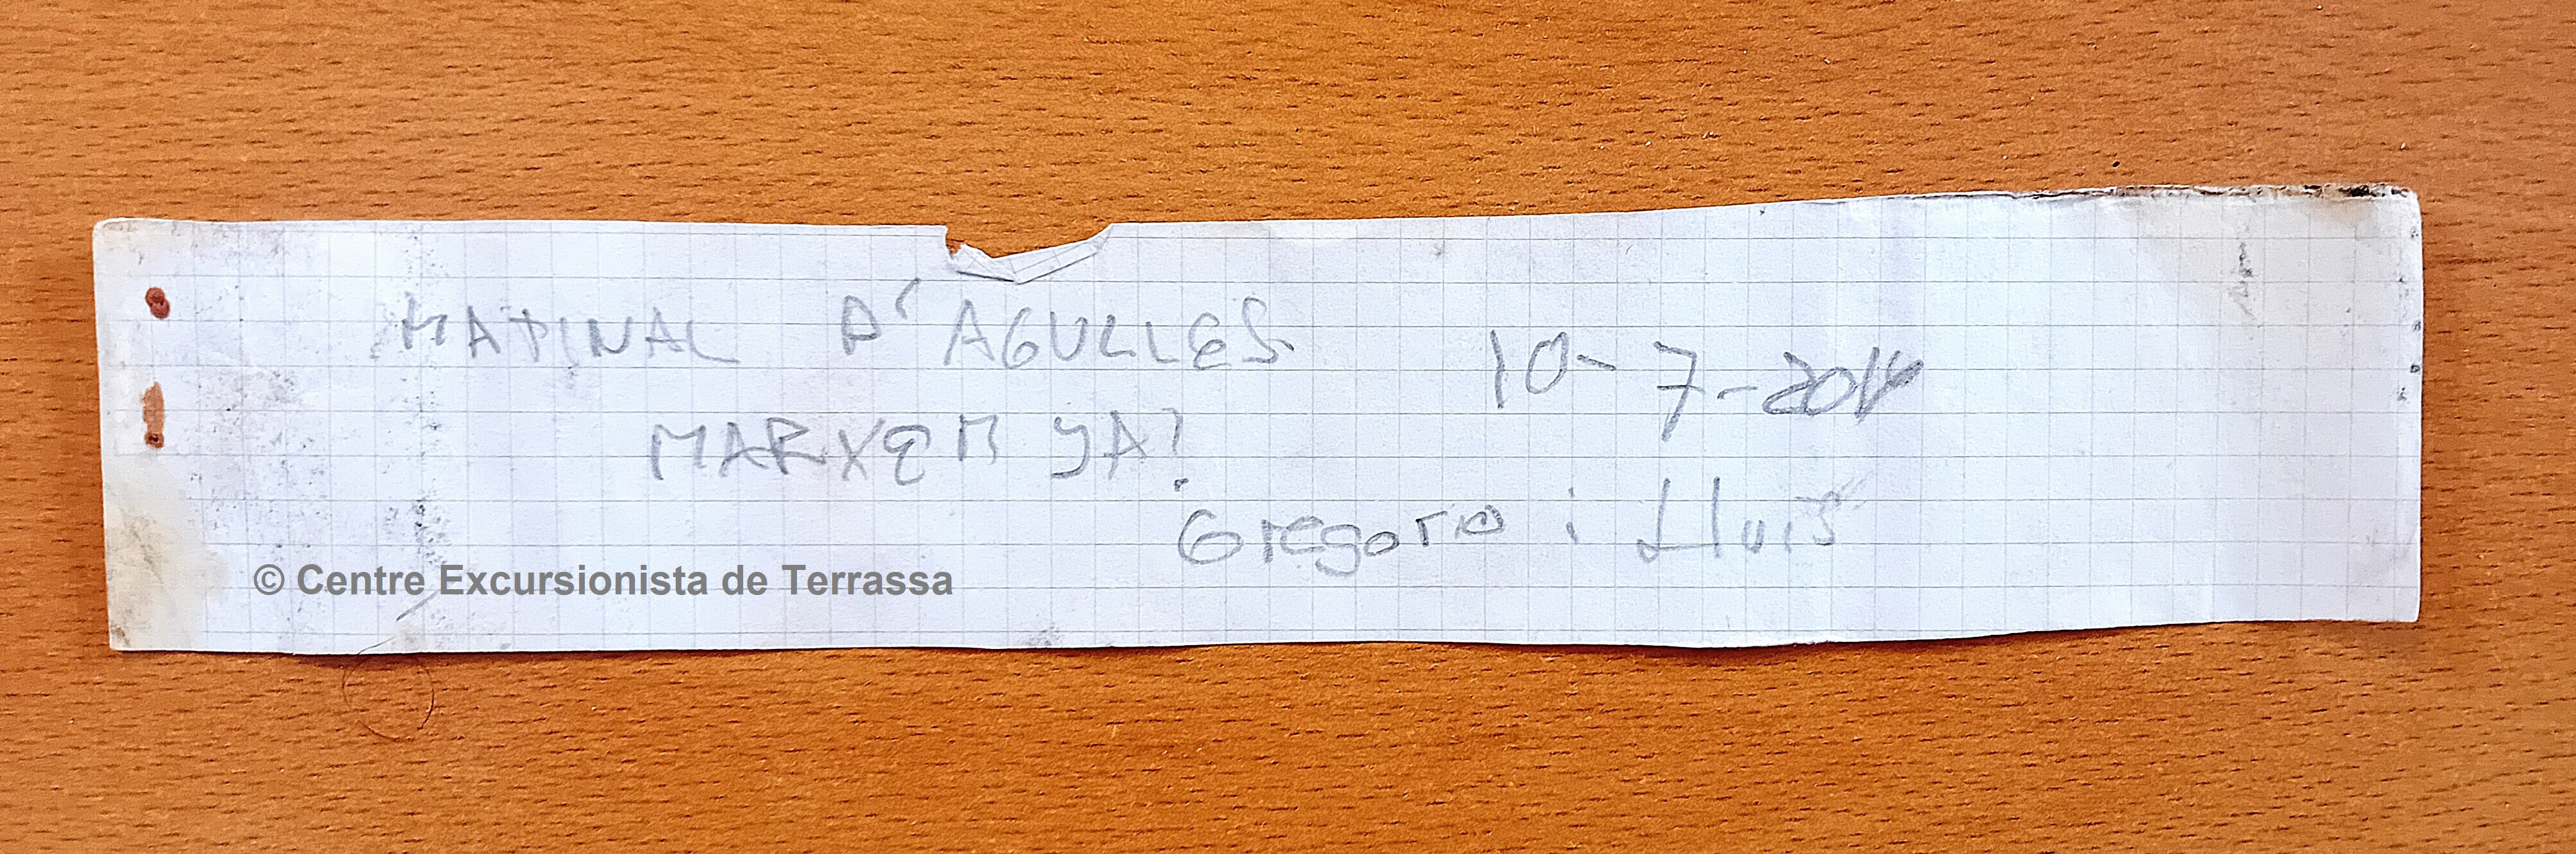 MATINAL D'AGULLES
10-7-201
MARXEM YA!
Gregorio i Lluis
© Centre Excursionista de Terrassa